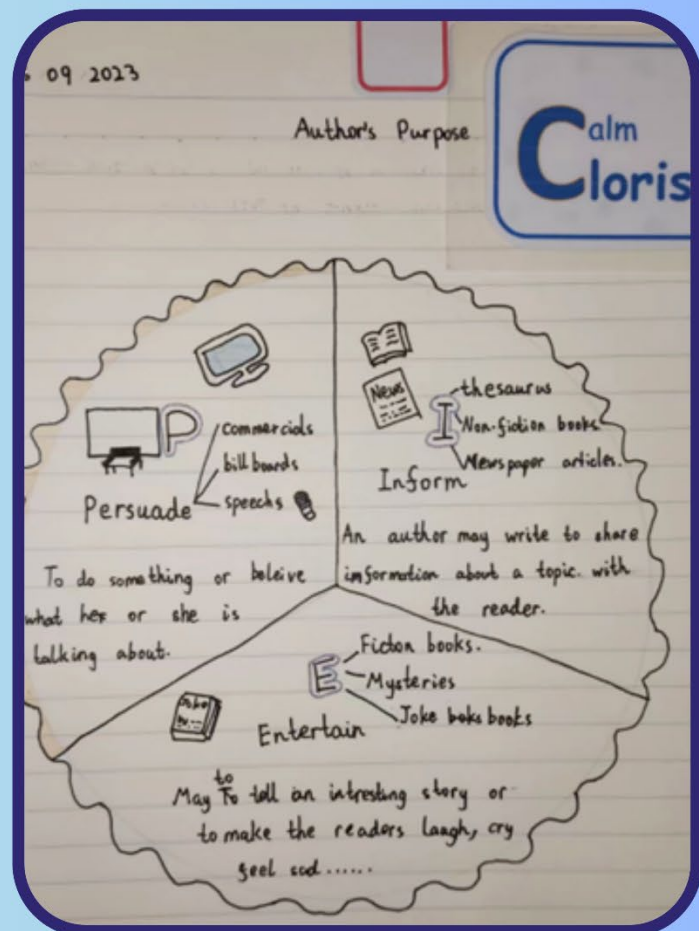 09 2023
Author's Purpose
Calm
Cloris
P
commercials
bill boards
speechs
Persuade
To do something or beleive
what her or she is
talking about.
News
I
thesaurus
Non-fiction books
Newspaper articles.
Inform
An author may write to share
information about a topic. with
the reader.
E
Ficton books.
Mysteries
Joke boks books
Entertain
to
May To tell an intresting story or
to make the readers laugh, cry
feel sad ......